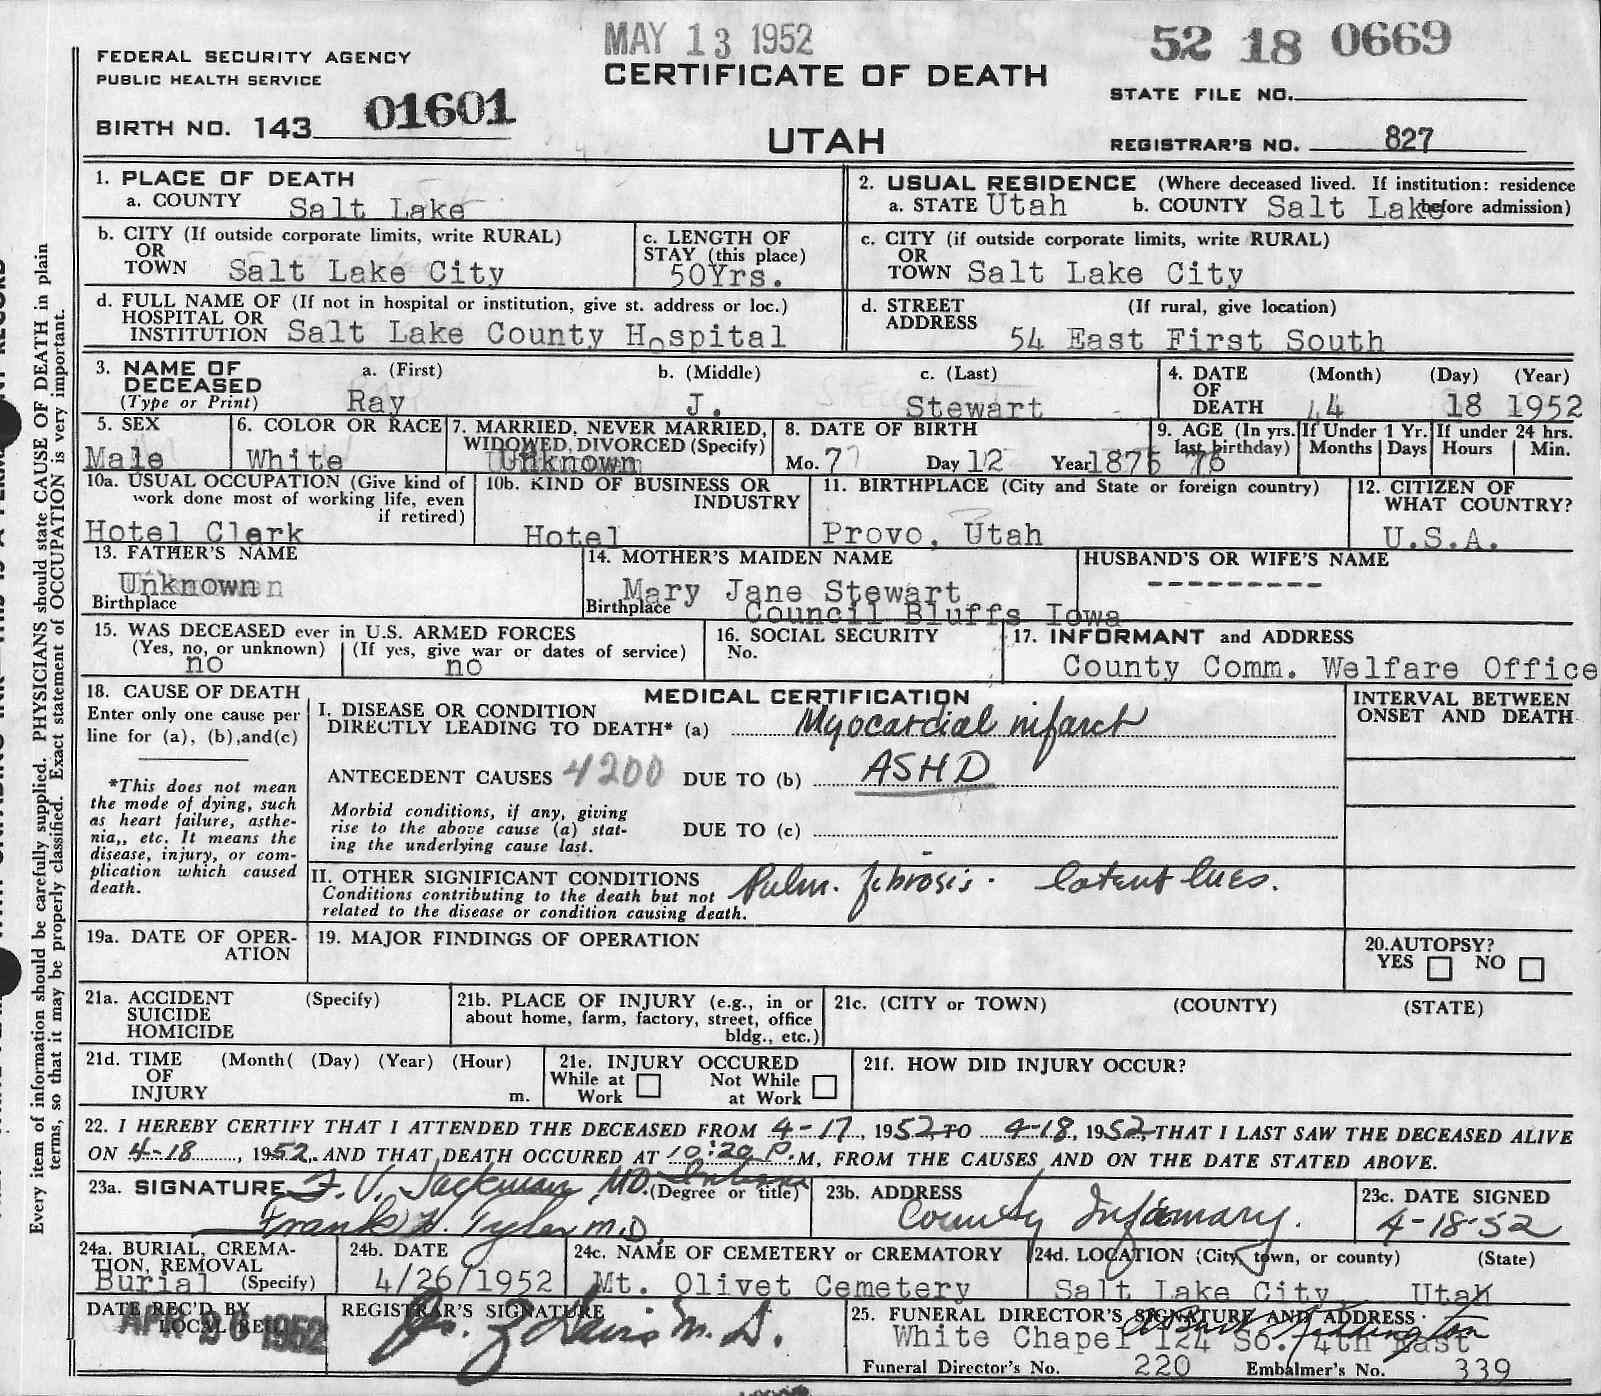 MAY 13 1952
52 18 0669
FEDERAL SECURITY AGENCY
PUBLIC HEALTH SERVICE
CERTIFICATE OF DEATH
STATE FILE NO.
BIRTH NO. 143 01601
UTAH
REGISTRAR'S NO. 827
Every item of information should be carefully supplied. PHYSICIANS should state CAUSE OF DEATH in plain
terms, so that it may be properly classified. Exact statement of OCCUPATION is very important.
1. PLACE OF DEATH
a. COUNTY Salt Lake
2. USUAL RESIDENCE (Where deceased lived. If institution: residence
a. STATE Utah b. COUNTY Salt Lake before admission)
b. CITY (If outside corporate limits, write RURAL)
OR
TOWN Salt Lake City
c. LENGTH OF
STAY (this place)
50Yrs.
c. CITY (if outside corporate limits, write RURAL)
OR
TOWN Salt Lake City
d. FULL NAME OF (If not in hospital or institution, give st. address or loc.)
HOSPITAL OR
INSTITUTION Salt Lake County Hospital
d. STREET (If rural, give location)
ADDRESS 54 East First South
3. NAME OF a. (First) b. (Middle) c. (Last)
DECEASED
(Type or Print) Ray J. Stewart
4. DATE (Month) (Day) (Year)
OF
DEATH 4 18 1952
5. SEX
Male
6. COLOR OR RACE
White
7. MARRIED, NEVER MARRIED,
WIDOWED, DIVORCED (Specify)
Unknown
8. DATE OF BIRTH
Mo. 7 Day 12 Year 1875
9. AGE (In yrs.
last birthday)
76
If Under 1 Yr.
Months Days
If under 24 hrs.
Hours Min.
10a. USUAL OCCUPATION (Give kind of
work done most of working life, even
if retired)
Hotel Clerk
10b. KIND OF BUSINESS OR
INDUSTRY
Hotel
11. BIRTHPLACE (City and State or foreign country)
Provo, Utah
12. CITIZEN OF
WHAT COUNTRY?
U.S.A.
13. FATHER'S NAME
Unknown
Birthplace
14. MOTHER'S MAIDEN NAME
Mary Jane Stewart
Birthplace Council Bluffs Iowa
HUSBAND'S OR WIFE'S NAME
---------
15. WAS DECEASED ever in U.S. ARMED FORCES
(Yes, no, or unknown) (If yes, give war or dates of service)
no no
16. SOCIAL SECURITY
No.
17. INFORMANT and ADDRESS
County Comm. Welfare Office
18. CAUSE OF DEATH
Enter only one cause per
line for (a), (b),and(c)
*This does not mean
the mode of dying, such
as heart failure, asthe-
nia,, etc. It means the
disease, injury, or com-
plication which caused
death.
MEDICAL CERTIFICATION
I. DISEASE OR CONDITION
DIRECTLY LEADING TO DEATH* (a) Myocardial infarct
ANTECEDENT CAUSES 4200 DUE TO (b) ASHD
Morbid conditions, if any, giving
rise to the above cause (a) stat-
ing the underlying cause last.
DUE TO (c)
II. OTHER SIGNIFICANT CONDITIONS
Conditions contributing to the death but not
related to the disease or condition causing death.
Pulm. fibrosis. latent lues.
INTERVAL BETWEEN
ONSET AND DEATH
19a. DATE OF OPER-
ATION
19. MAJOR FINDINGS OF OPERATION
20.AUTOPSY?
YES NO
21a. ACCIDENT (Specify)
SUICIDE
HOMICIDE
21b. PLACE OF INJURY (e.g., in or
about home, farm, factory, street, office
bldg., etc.)
21c. (CITY or TOWN) (COUNTY) (STATE)
21d. TIME (Month( (Day) (Year) (Hour)
OF
INJURY m.
21e. INJURY OCCURED
While at Not While
Work at Work
21f. HOW DID INJURY OCCUR?
22. I HEREBY CERTIFY THAT I ATTENDED THE DECEASED FROM 4-17, 1952, TO 4-18, 1952, THAT I LAST SAW THE DECEASED ALIVE
ON 4-18, 1952, AND THAT DEATH OCCURED AT 10:20 P.M, FROM THE CAUSES AND ON THE DATE STATED ABOVE.
23a. SIGNATURE F. V. Jackman MD. (Degree or title)
Frank H. Tyler M.D.
23b. ADDRESS
County Infirmary.
23c. DATE SIGNED
4-18-52
24a. BURIAL, CREMA-
TION, REMOVAL
Burial (Specify)
24b. DATE
4/26/1952
24c. NAME OF CEMETERY or CREMATORY
Mt. Olivet Cemetery
24d. LOCATION (City, town, or county) (State)
Salt Lake City, Utah
DATE REC'D BY
LOCAL REG.
APR 1952
REGISTRAR'S SIGNATURE
M. D.
25. FUNERAL DIRECTOR'S SIGNATURE AND ADDRESS
White Chapel 124 So. 4th East
Funeral Director's No. 220 Embalmer's No. 339